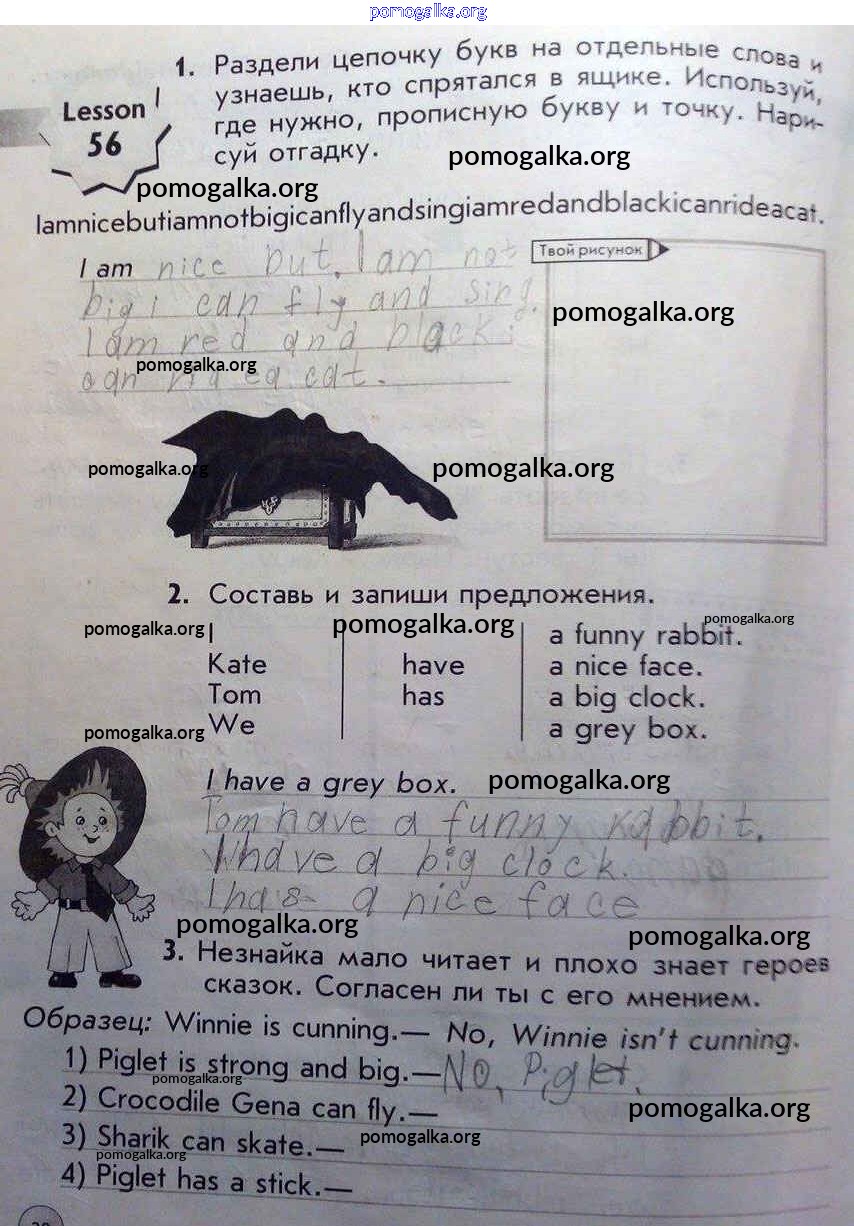 pomogalka.org
1. Раздели цепочку букв на отдельные слова и
узнаешь, кто спрятался в ящике. Используй,
где нужно, прописную букву и точку. Нари-
суй отгадку.
Lesson
56
pomogalka.org
pomogalka.org
Iamnicebutiamnotbigicanflyandsingiamredandblackicanrideacat.
I am nice but. I am not
big i can fly and sing.
I am red and black i
can rid ea cat.
Твой рисунок
pomogalka.org
pomogalka.org
pomogalka.org
pomogalka.org
2. Составь и запиши предложения.
pomogalka.org
pomogalka.org
pomogalka.org
I a funny rabbit.
Kate have a nice face.
Tom has a big clock.
We a grey box.
pomogalka.org
I have a grey box.
pomogalka.org
Tom have a funny rabbit.
have a big clock.
I has a nice face
pomogalka.org
pomogalka.org
3. Незнайка мало читает и плохо знает героев
сказок. Согласен ли ты с его мнением.
Образец: Winnie is cunning.— No, Winnie isn't cunning.
1) Piglet is strong and big.— NO, Piglet.
pomogalka.org
2) Crocodile Gena can fly.—
pomogalka.org
3) Sharik can skate.—
pomogalka.org
pomogalka.org
4) Piglet has a stick.—